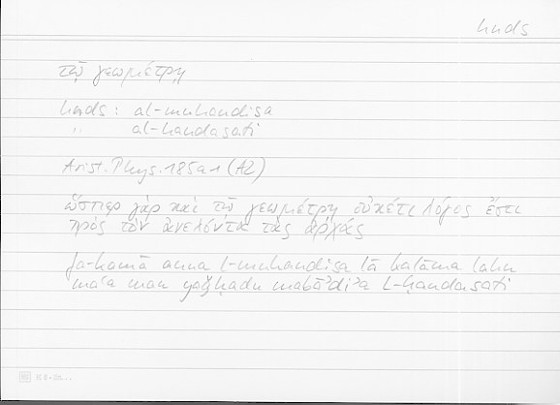 hnds
τῷ γεωμέτρῃ
hnds : al-muhandisa
" al-handasati
Arist. Phys. 185a1 (A2)
ὥσπερ γὰρ καὶ τῷ γεωμέτρῃ οὐκέτι λόγος ἔστι
πρὸς τὸν ἀνελόντα τὰς ἀρχάς
fa-kamā anna l-muhandisa lā kalāma lahu
maʿa man yaǧḥadu mabādiʾa l-handasati